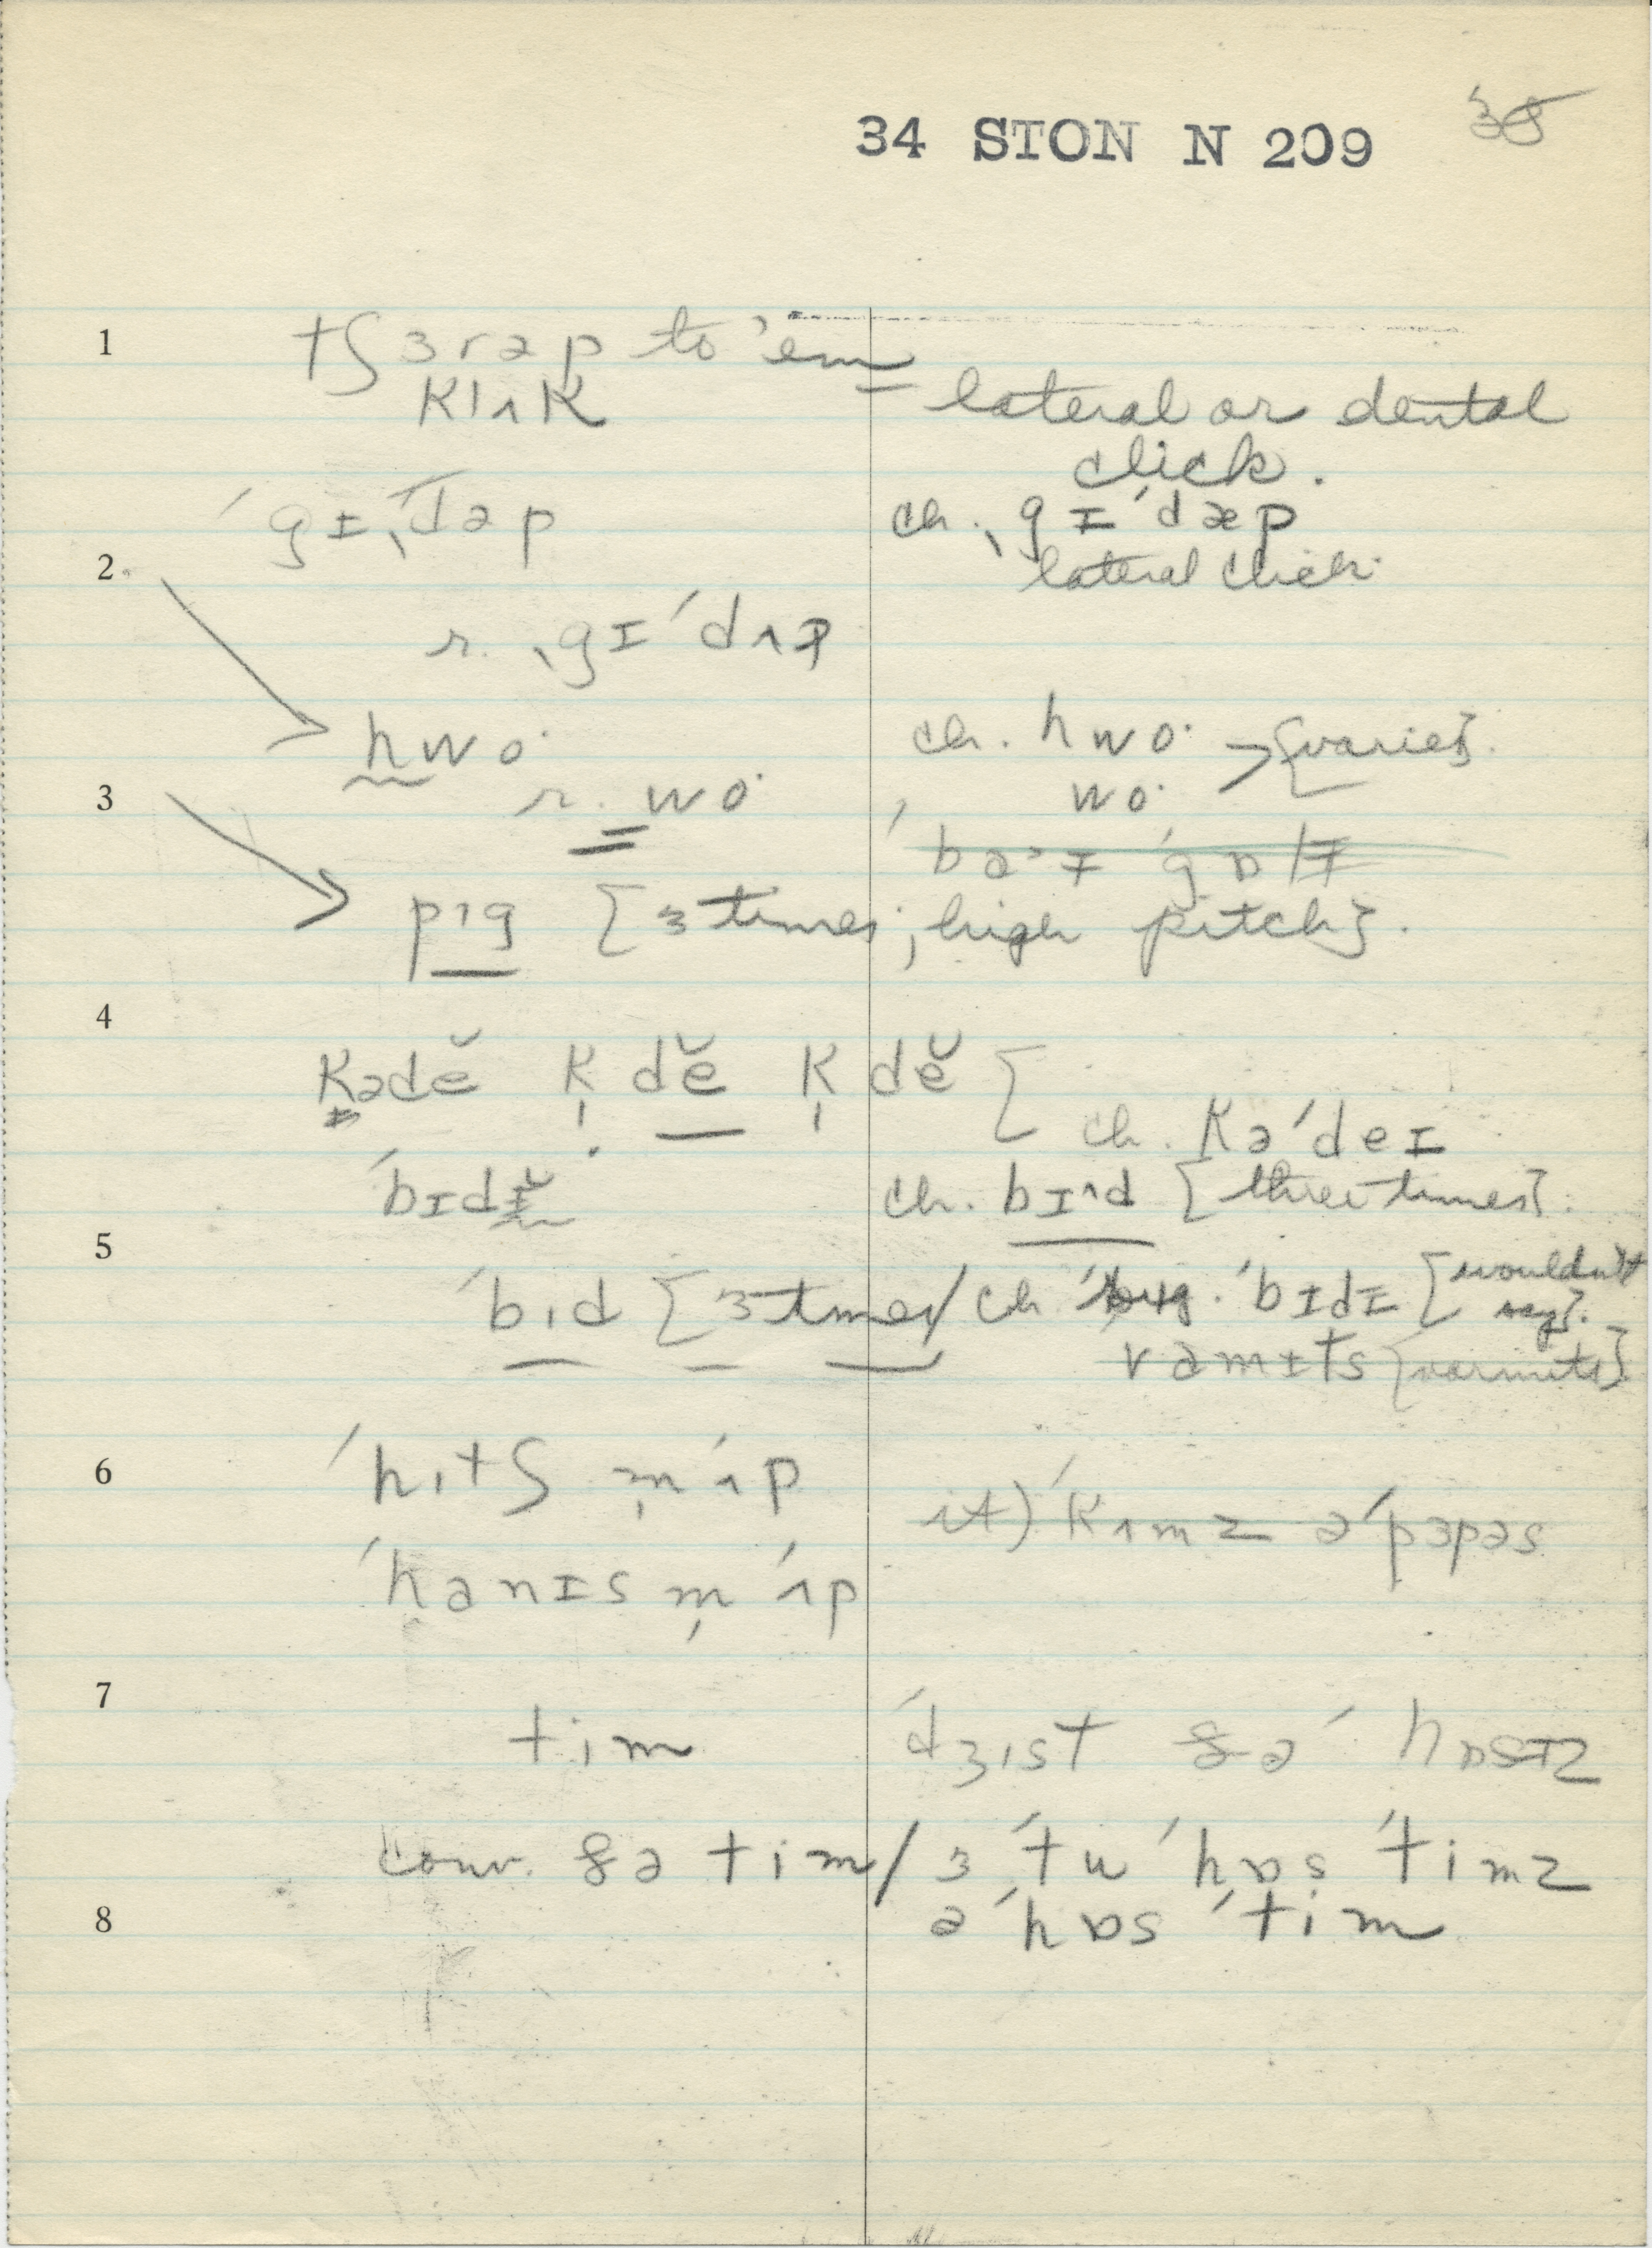 34 STON N 209 38
1 tʃɜrəp to 'em
klʌk = lateral or dental
click.
ˈgɪˌdəp ch. ˌgɪˈdæp
2 lateral click
r. ˌgɪˈdʌp
hwo· ch. hwo· > [varies].
3 r. wo· wo·
ˈbəˑɪ ˈgɒlɪ
pɪg [3 times; high pitch].
4
Kədĕ K̩dĕ K̩dĕ [
ch. Kəˈdeɪ
ˈbɪdɪ̆ ch. bɪˑd [three times].
5
ˈbɪd [3 times / ch. ˈbɪdɪ [wouldn't
say].
vamɪts [varmits]
6 ˈhɪtʃ m̩ ˈʌp
it) ˈkʌmz əˈpɜpəs
ˈhanɪs m̩ ˈʌp
7
tim ˈdʒɪst ðə ˈhɒsɪz
conv. ðə tim / ɜ ˈtu ˈhɒs ˈtimz
8 ə ˈhɒs ˈtim